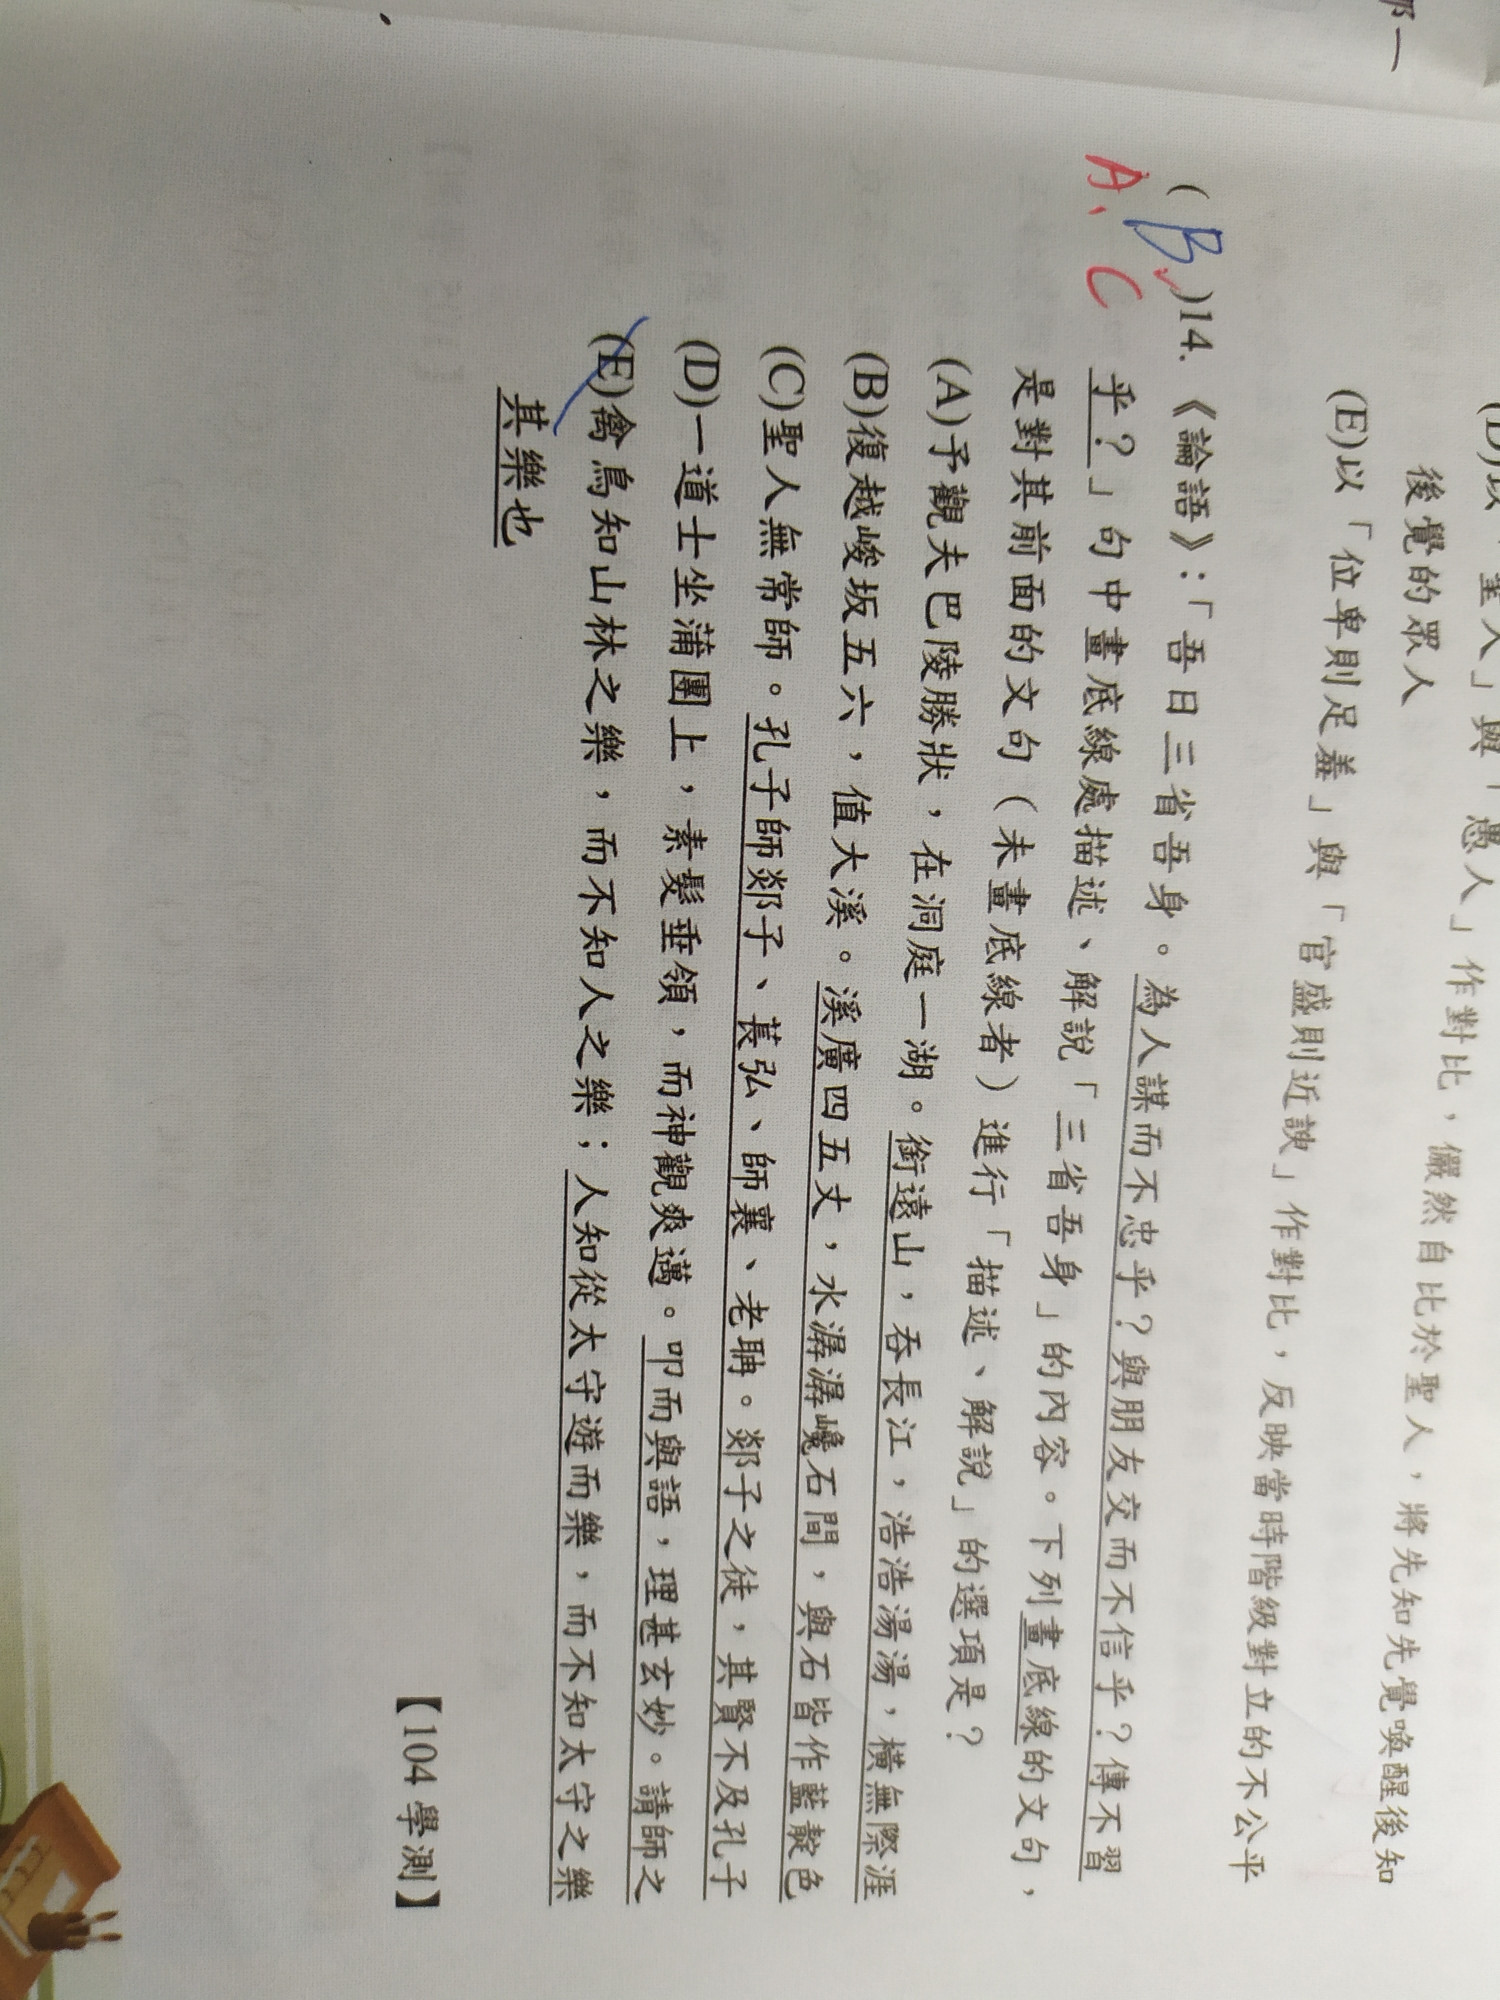 那一
後覺的眾人
(E)以「位卑則足羞」與「官盛則近諛」作對比，反映當時階級對立的不公平
(D)以「聖人」與「愚人」作對比，儼然自比於聖人，將先知先覺喚醒後知
(B✓)14.《論語》：「吾日三省吾身。為人謀而不忠乎？與朋友交而不信乎？傳不習
A、C
乎？」句中畫底線處描述、解說「三省吾身」的內容。下列畫底線的文句，
是對其前面的文句（未畫底線者）進行「描述、解說」的選項是？
(A)予觀夫巴陵勝狀，在洞庭一湖。銜遠山，吞長江，浩浩湯湯，橫無際涯
(B)復越峻坂五六，值大溪。溪廣四五丈，水潺潺巉石間，與石皆作藍靛色
(C)聖人無常師。孔子師郯子、萇弘、師襄、老聃。郯子之徒，其賢不及孔子
(D)一道士坐蒲團上，素髮垂領，而神觀爽邁。叩而與語，理甚玄妙。請師之
(E)禽鳥知山林之樂，而不知人之樂；人知從太守遊而樂，而不知太守之樂
其樂也
【104 學測】